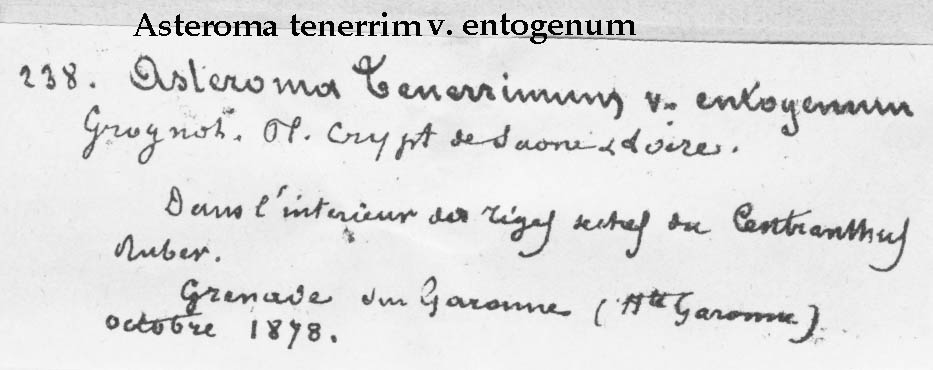 Asteroma tenerrim v. entogenum
238. Asteroma Tenerrimum v. entogenum
Grognot. Pl. Crypt de Saone & Loire.
Dans l'interieur des tiges seches du Centranthus
Ruber.
Grenade sur Garonne (Hte Garonne)
Octobre 1878.